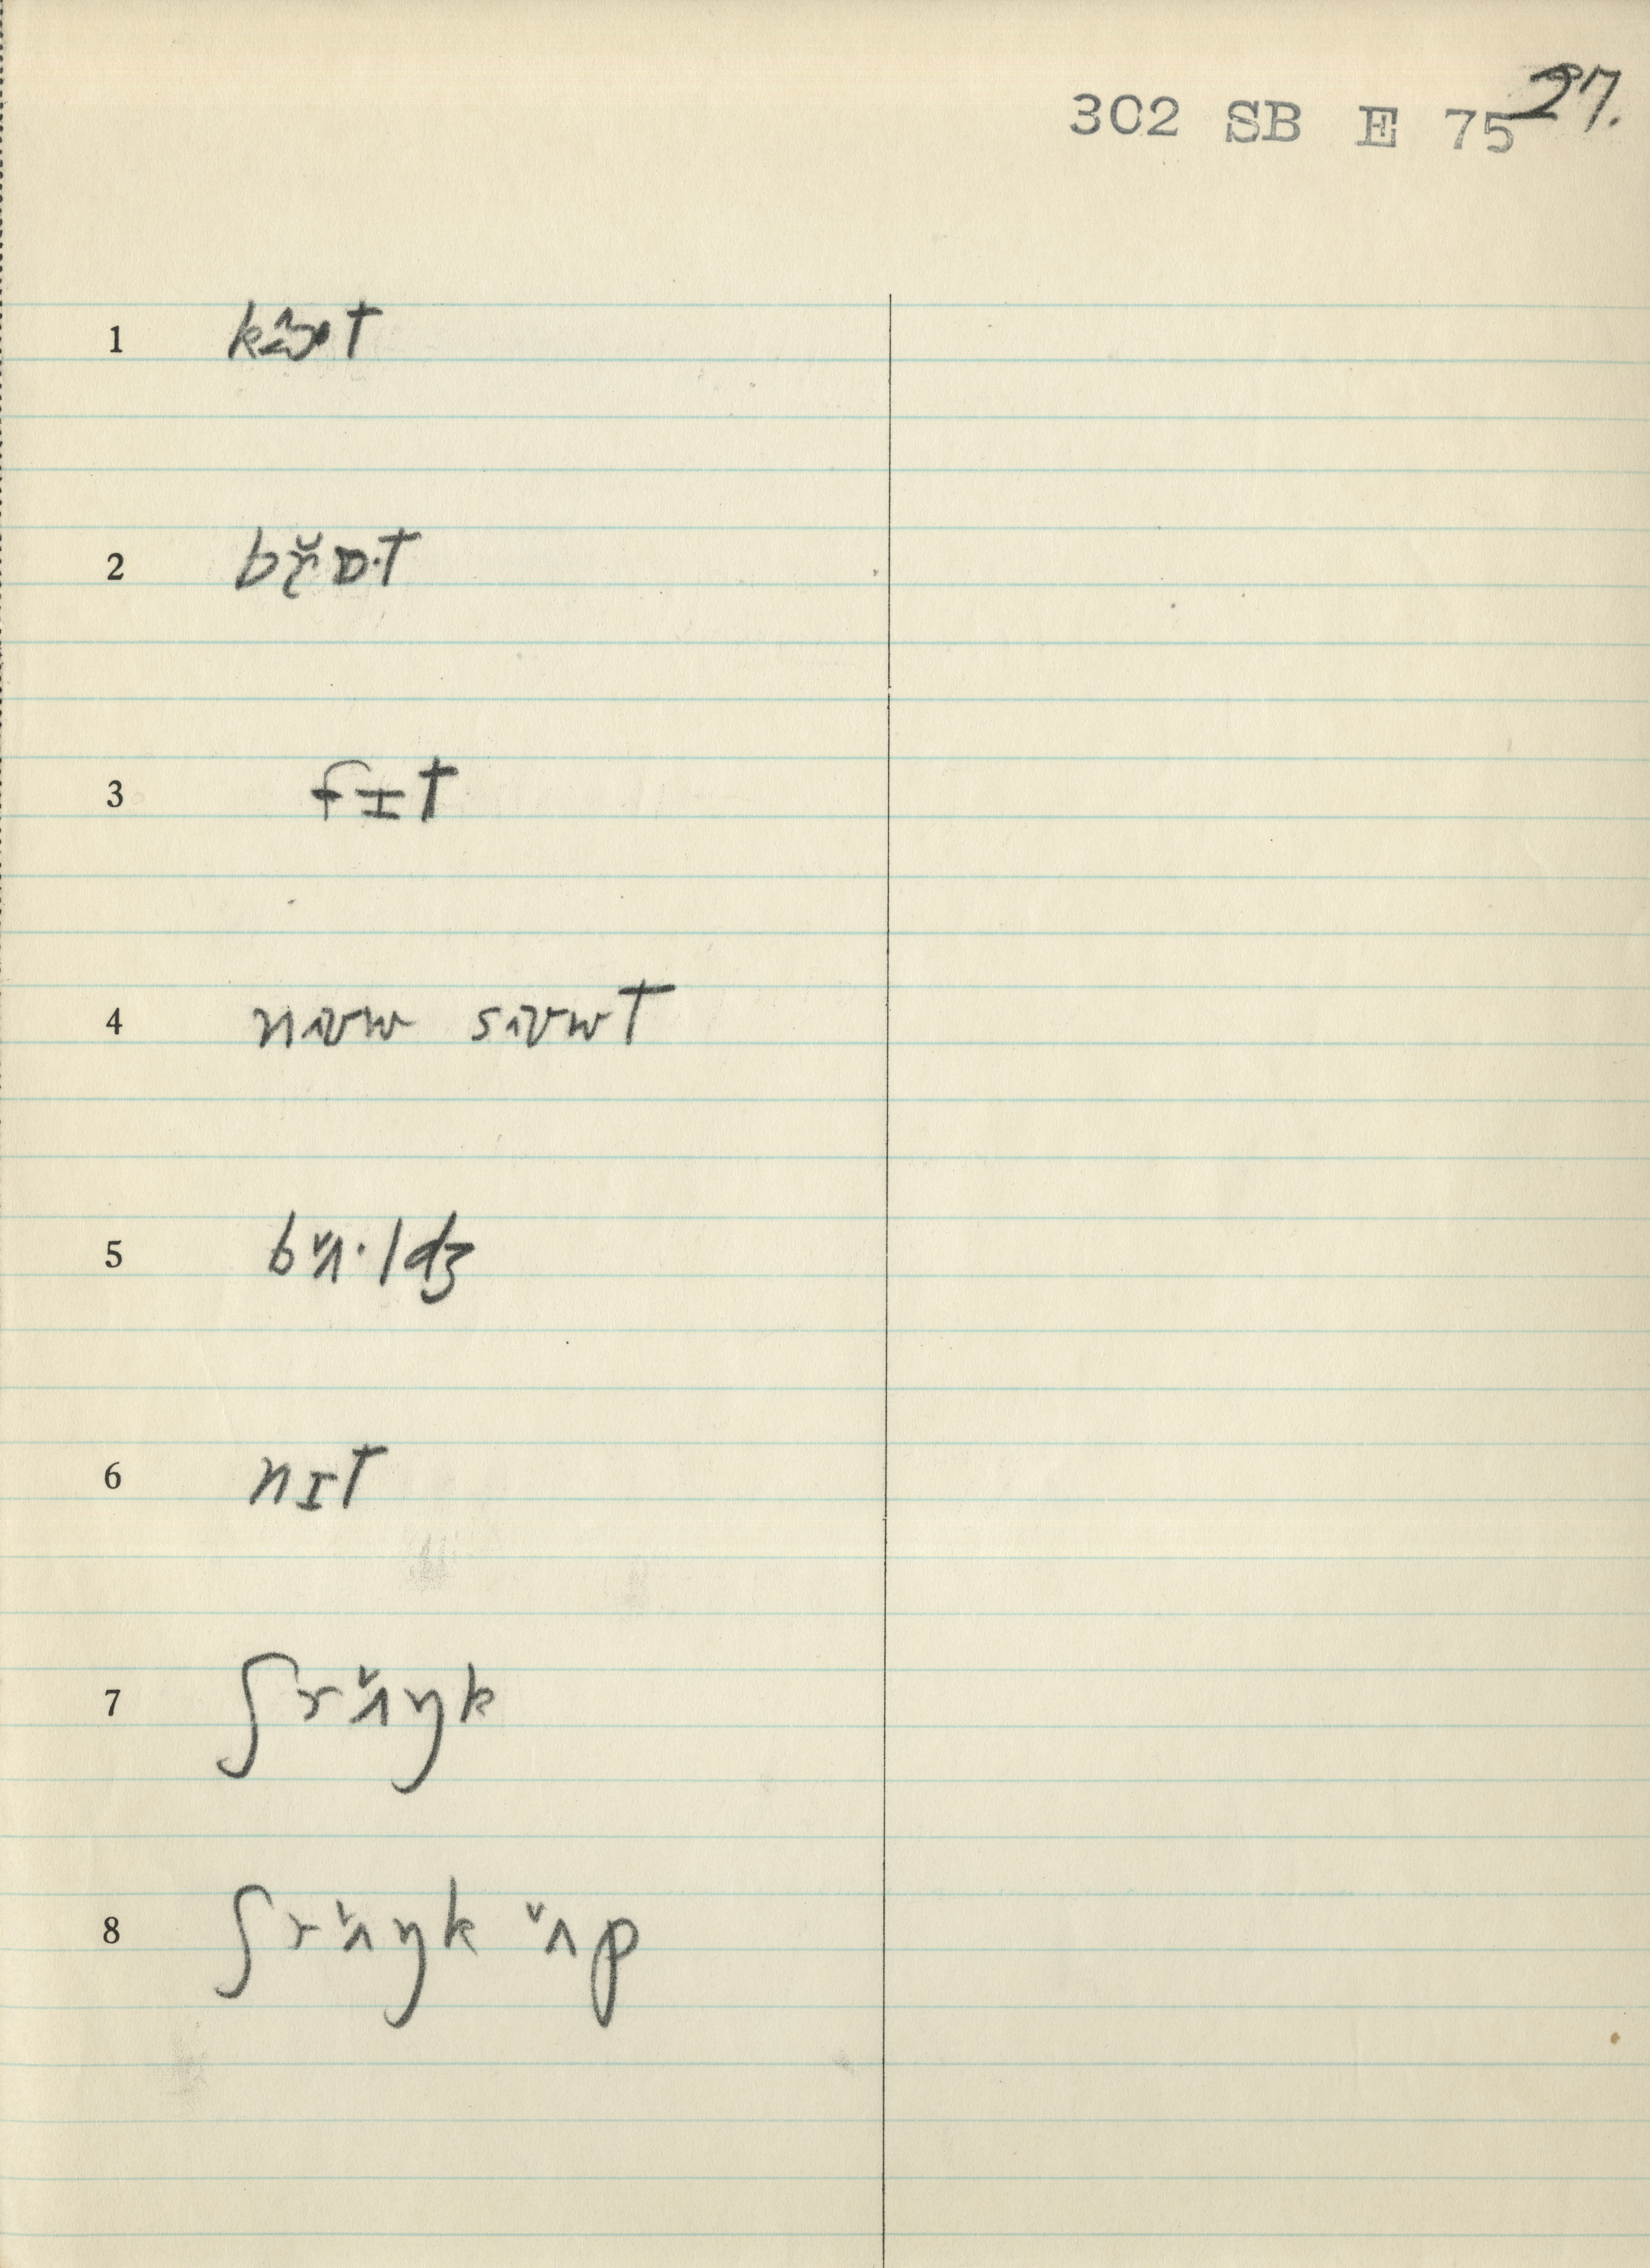 302 SB E 75 27.
1
2 bɤ̆ɒ·t
3 fɪt
4 nɪʊw sɪʊwt
5 bʌ̆·ldʒ
6 nɪt
7 ʃrʌ̆ŋk
8 ʃrʌ̆ŋk ʌ̆p